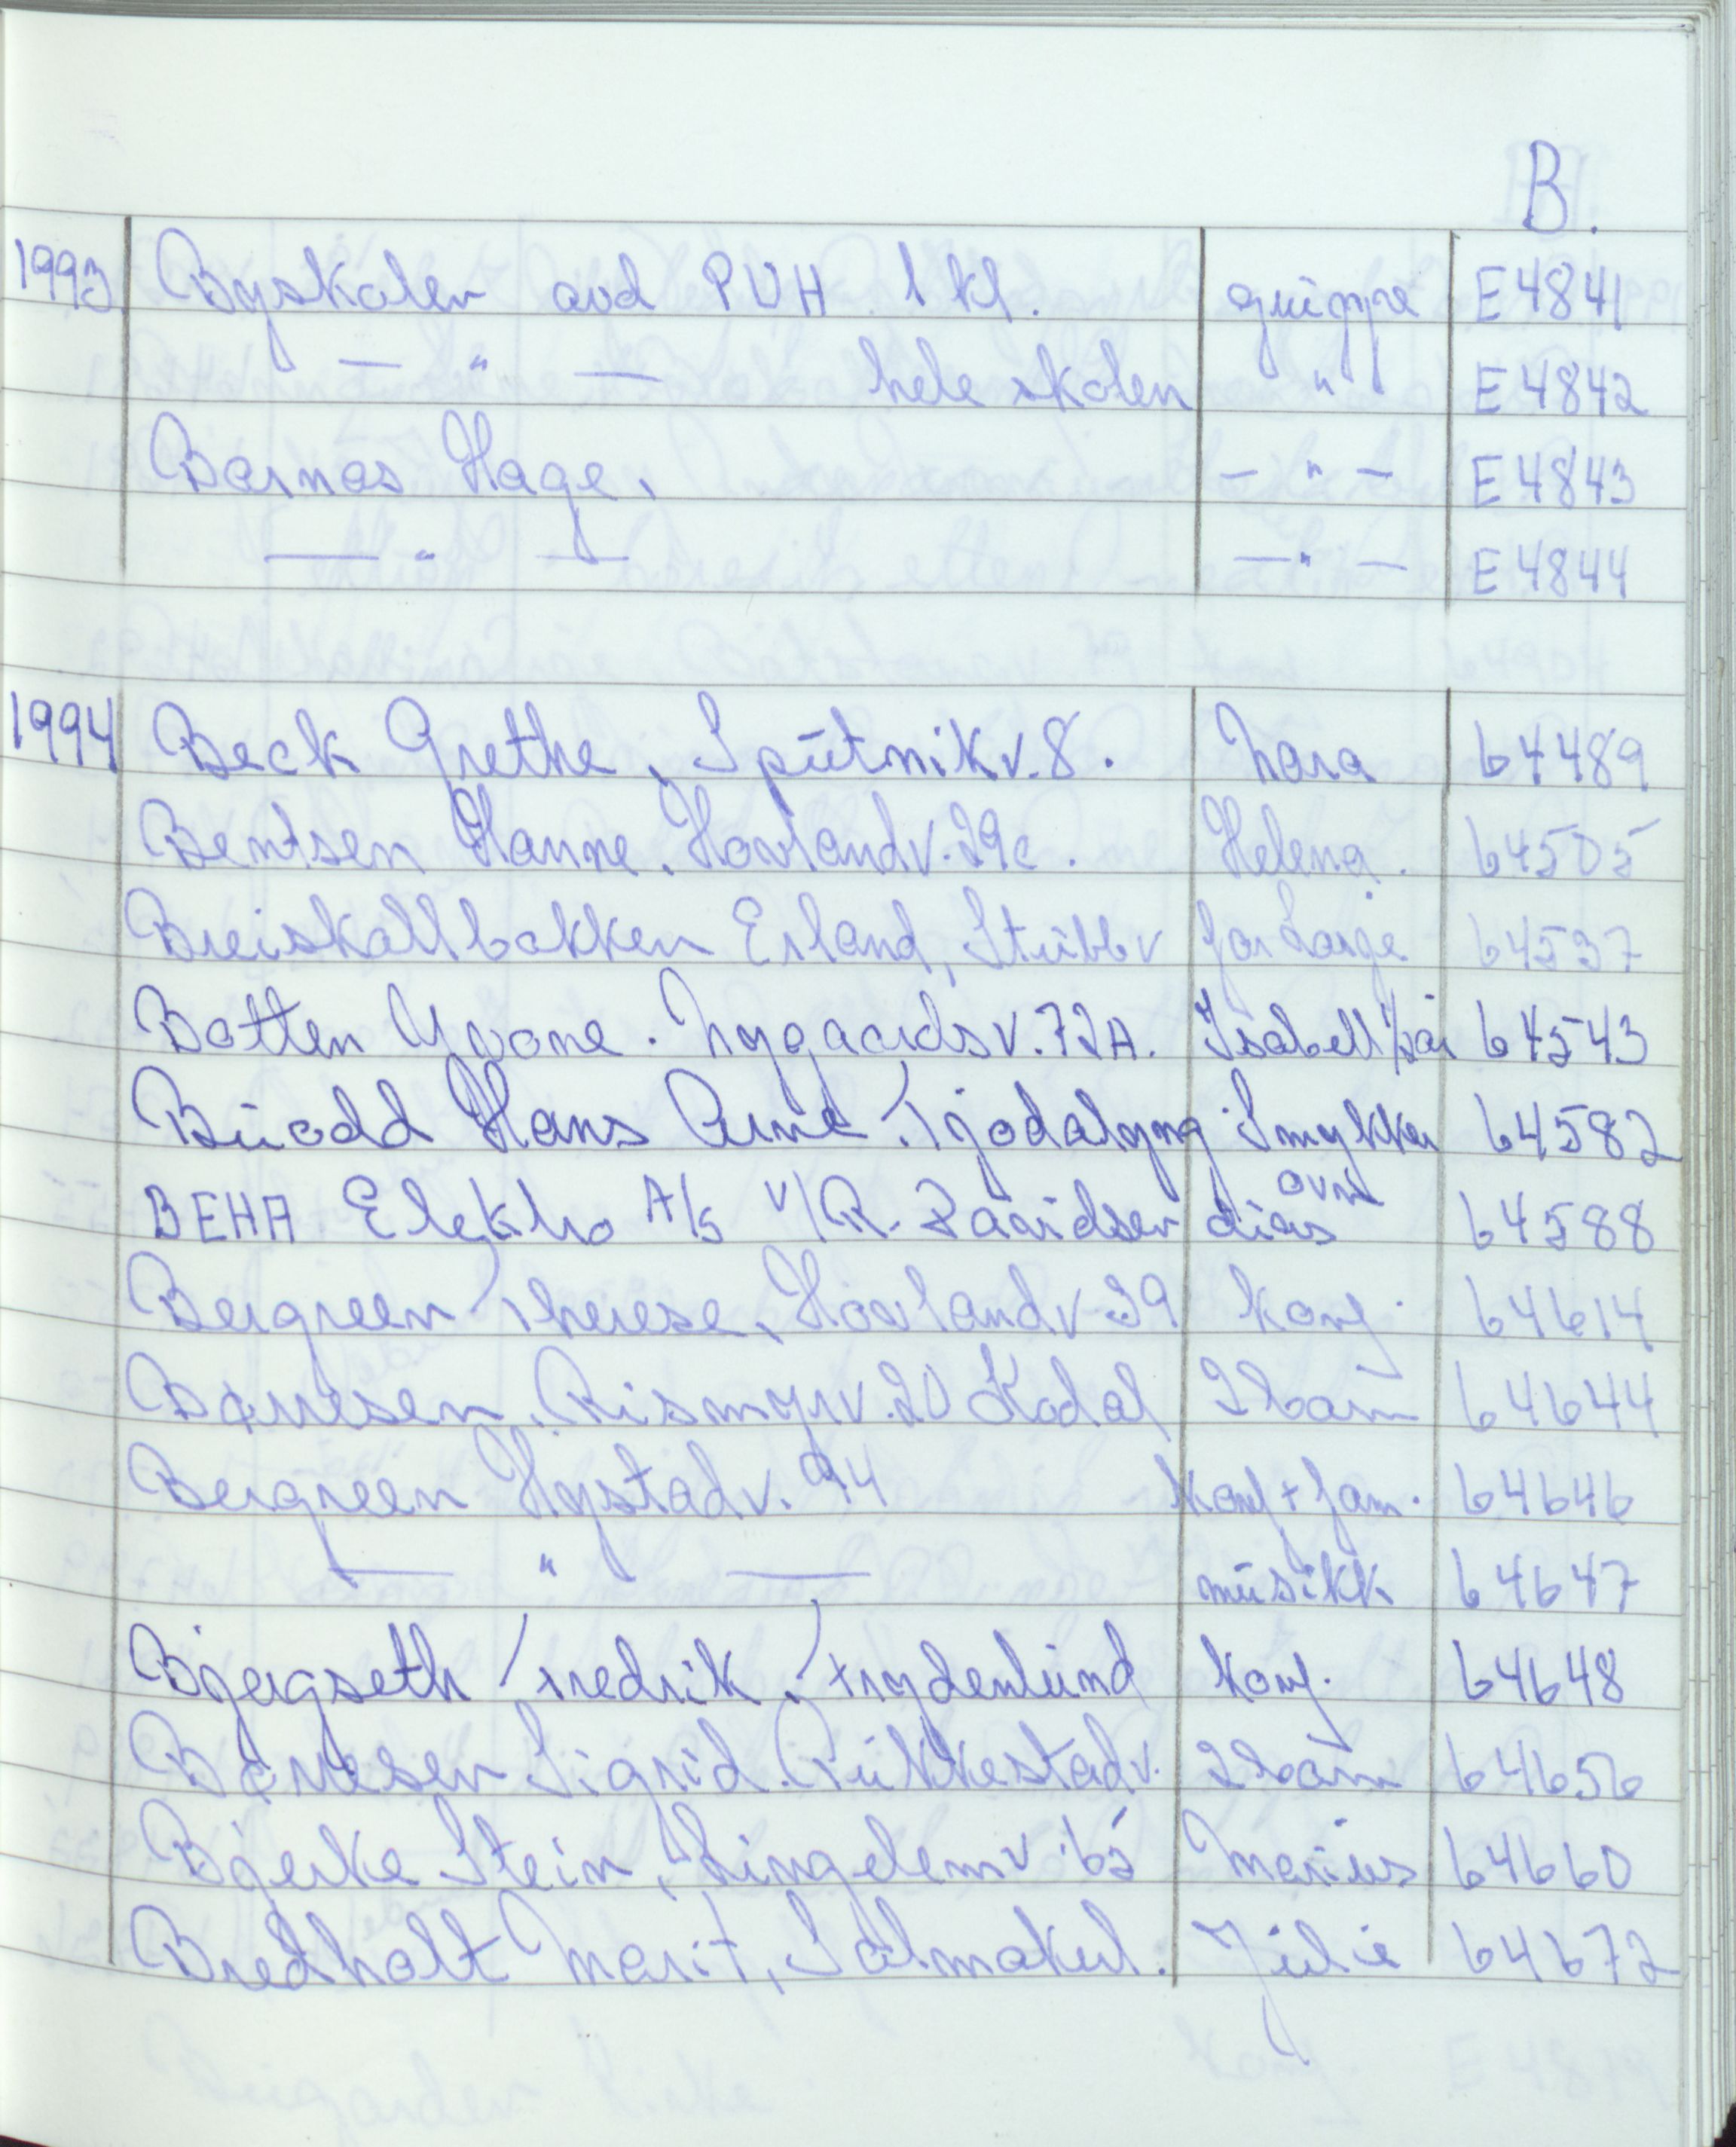 B.
1993 Byskolen avd PUH 1 kl. gruppe E4841
— " — hele skolen " E4842
Barnas Hage. — " — E4843
— " — — " — E4844
1994 Beck Grethe, Sputnikv. 8. Nora 64489
Bentsen Hanne, Hovlandv. 29c. Helena. 64505
Breiskallbakken Erland, Stubbv 64537
Botten Yvone. Nygaardsv. 72A. Isabell 64543
Buodd Hans Arne, Tjodalyng Smykker 64582
BEHA Elektro A/S v/R. Davidsen divs ovn 64588
Bergreen Therese, Hovlandv 29 konf. 64614
Børresen, Rismyrv. 20 Kodal 2 barn 64644
Bergreen Hystadv. 94 konf + fam. 64646
— " — musikk 64647
Bjergseth Fredrik, Frydenlund konf. 64648
Børresen Sigrid. Rukkestadv. 2 barn 64656
Bjerke Stein, Lingelemv 65 Marius 64660
Bredholt Marit, Salmakerl. Julie 64672